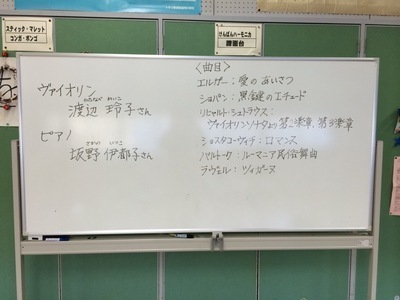 スティック・マレット
コンガ・ボンゴ
けんばんハーモニカ
譜面台
ヴァイオリン
わたなべ れいこ
渡辺 玲子さん
ピアノ
さかの いつこ
坂野 伊都子さん
〈曲目〉
エルガー:愛のあいさつ
ショパン:黒鍵のエチュード
リヒャルト・シュトラウス:
ヴァイオリンソナタより 第2楽章、第3楽章
ショスタコーヴィチ:ロマンス
バルトーク:ルーマニア民俗舞曲
ラヴェル:ツィガーヌ